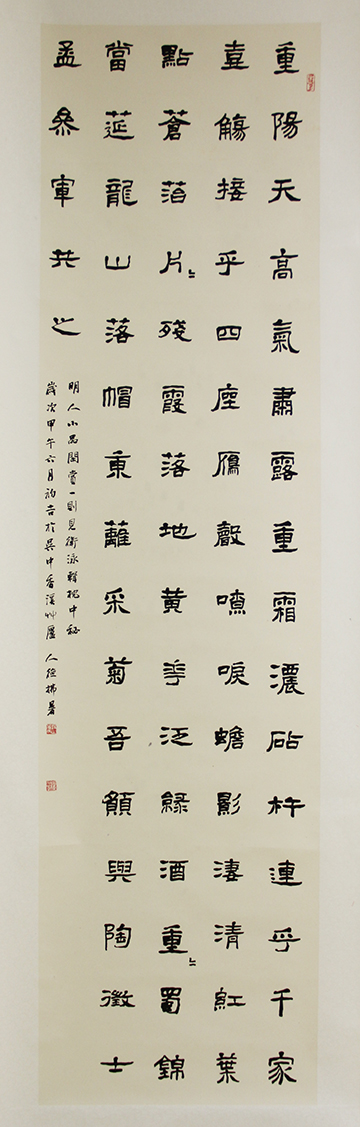 重陽天高氣肅露重霜濃砧杵連乎千家
壺觴接乎四座鴈聲嘹唳蟾影淒清紅葉
點蒼苔片々殘霞落地黃華泛綠酒重々蜀錦
當莚龍山落帽東蘺采菊吾願與陶徵士
孟參軍共之
明人小品閒賞一則見衛泳輯枕中秘
歲次甲午六月初吉於吳中香溪艸廬 人拂暑